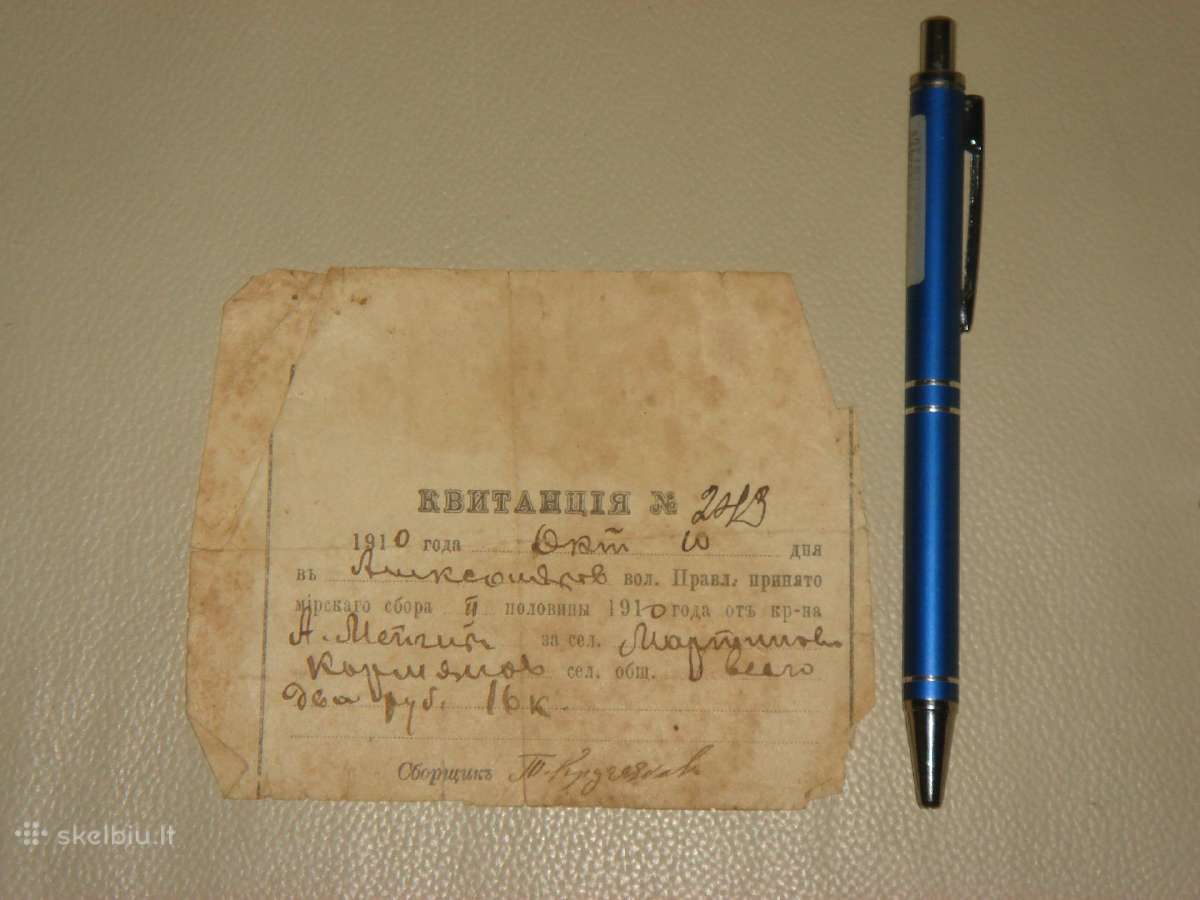 КВИТАНЦІЯ № 243
1910 года Окт 10 дня
въ Александров вол. Правл. принято
мірскаго сбора II половины 1910 года отъ кр-на
А. за сел.
сел. общ. всего
два руб. 16 к.
Сборщикъ
skelbiu.lt